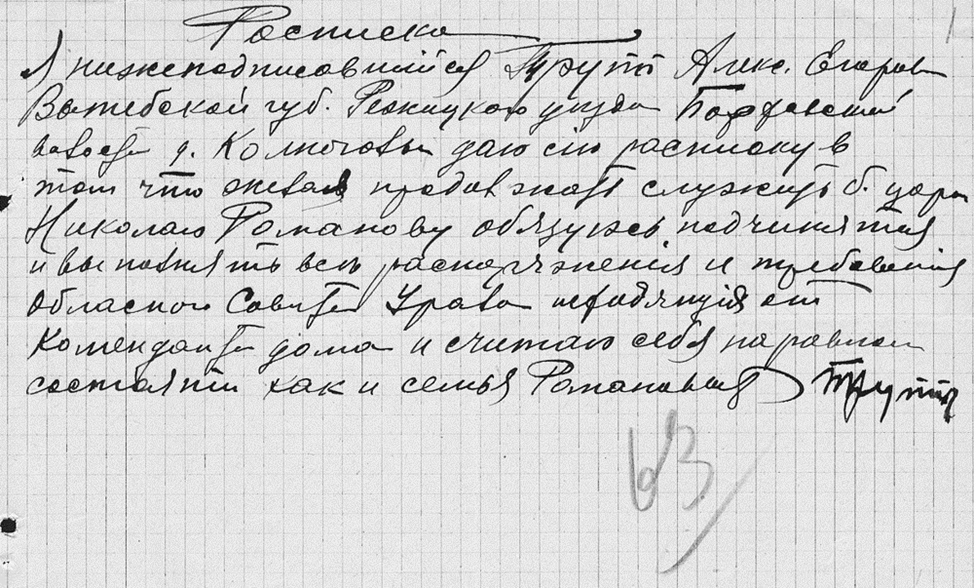 Росписка
Я нижеподписовшийся Трупп Алекс. Егоров
Витебской губ. Режицкаго уезда
д. Колногова даю сию расписку в
том что желая продолжать служить б. царю
Николаю Романову обязуюсь подчинятся
и выполнять все распоряжения и требования
Обласного Совета Урала исходящия от
Коменданта дома и считаю себя на равном
состоянии как и семья Романовых Трупп
63
1